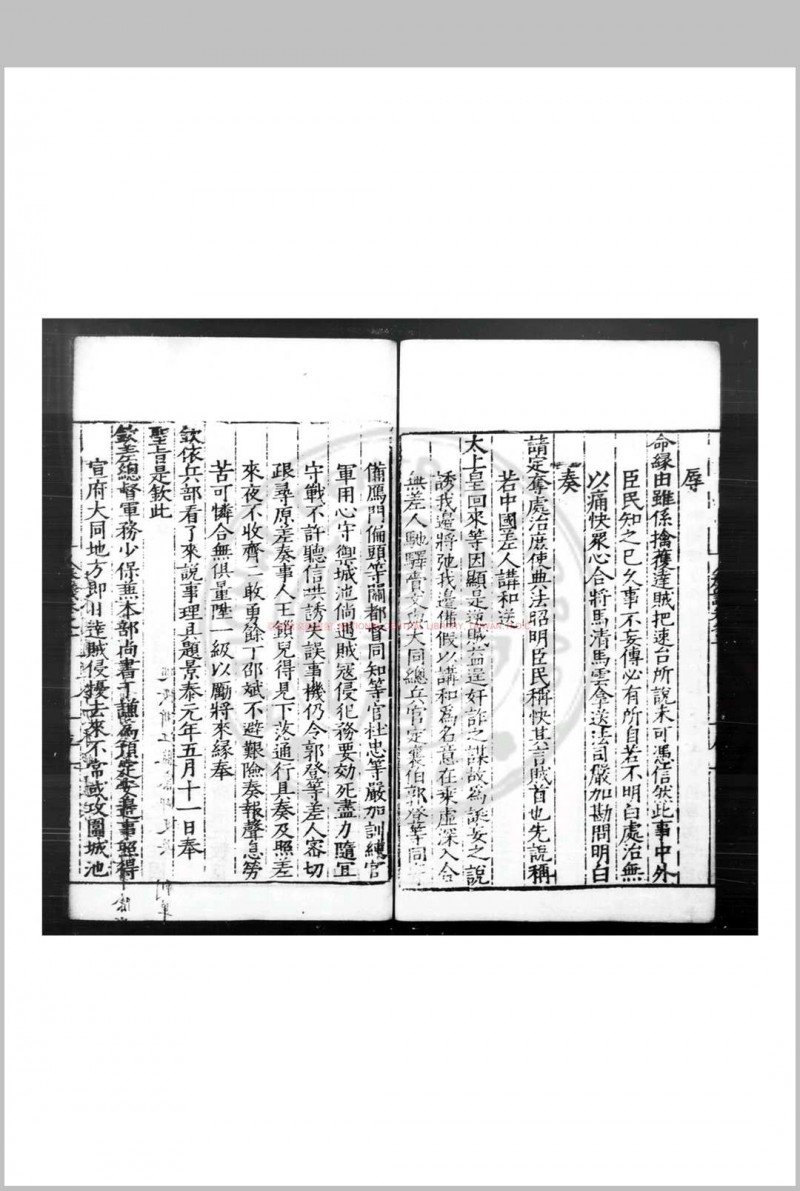 辱
命緣由雖係擒獲達賊把速台所說未可憑信然此事中外
臣民知之已久事不妄傳必有所自若不明白處治無
以痛快眾心合將馬清馬雲拿送法司嚴加勘問明白
奏
請定奪處治庶使典法昭明臣民稱快其言賊首也先說稱
若中國差人講和送
太上皇回來等因顯是逆賊益逞奸詐之謀故為詭妄之說
誘我邊將弛我邊備假以講和為名意在乘虛深入合
無差人馳驛齎文與大同總兵官定襄伯郭登等同
備鴈門偏頭等關都督同知等官杜忠等嚴加訓練官
軍用心守禦城池倘遇賊寇侵犯務要効死盡力隨宜
守戰不許聽信哄誘失誤事機仍令郭登等差人審切
跟尋原差奏事人王鎖兒得見下落通行具奏及照差
來夜不收齊二敢勇餘丁邵斌不避艱險奏報聲息勞
苦可憐合無俱量陞一級以勵將來緣奉
欽依兵部看了來說事理具題景泰元年五月十一日奉
聖旨是欽此
欽差總督軍務少保兼本部尚書于謙為預定安邊事照得
宣府大同地方即日達賊侵擾去來不常或攻圍城池